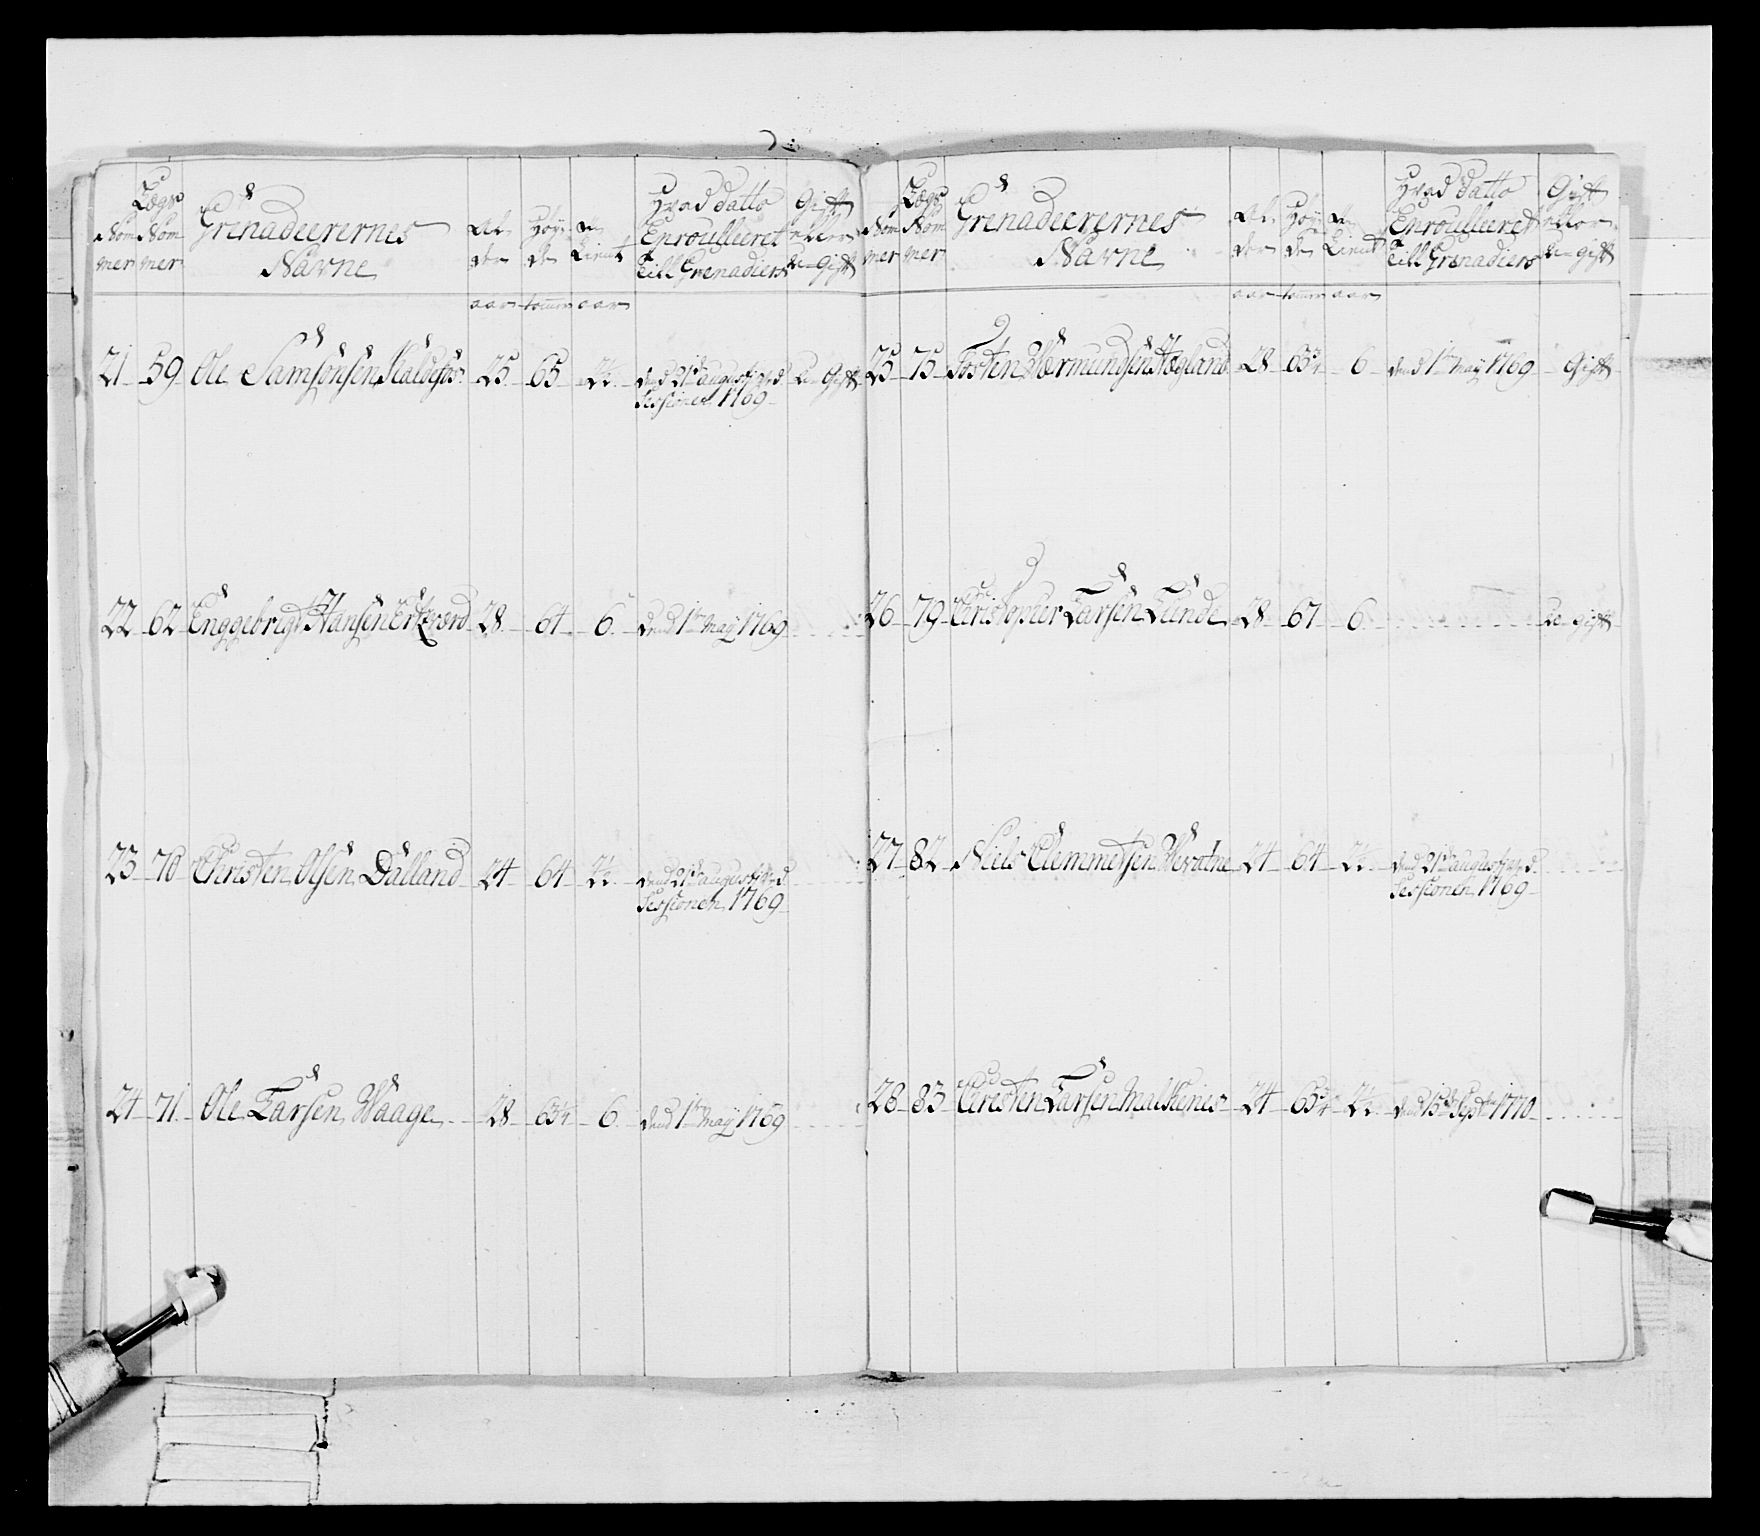 Nom mer
Lægs Nom mer
Grenadeerernes Navne
Al der
Høy de
tient
Hvad datto Enroulleeret till Grenadiers
Gift eller u-gift
aar tommer aar
21 59 Ole Samsonsen 25 65 2½ dend 21de august ved Sessionen 1769 u-Gift
22 62 Enggebrigt Hansen 28 64 6 dend 1te May 1769
23 70 Christen Olsen Dalland 24 64 2½ dend 21de august ved Sessionen 1769
24 71 Ole Larsen Waage 28 63¼ 6 dend 1te May 1769
Nom mer
Lægs Nom mer
Grenadeerernes Navne
Al der
Høy de
tient
Hvad datto Enroulleeret till Grenadiers
Gift eller u-gift
aar tommer aar
25 75 Tosten Wærmundsen Hægland 28 6 dend 1te May 1769 Gift
26 79 Christopher Larsen Lunde 28 67 6 u-gift
27 82 Niels Clemmetsen 24 64 2½ dend 21de august ved Sessionen 1769
28 83 Christen Larsen 24 2½ dend 15de Septbr 1770